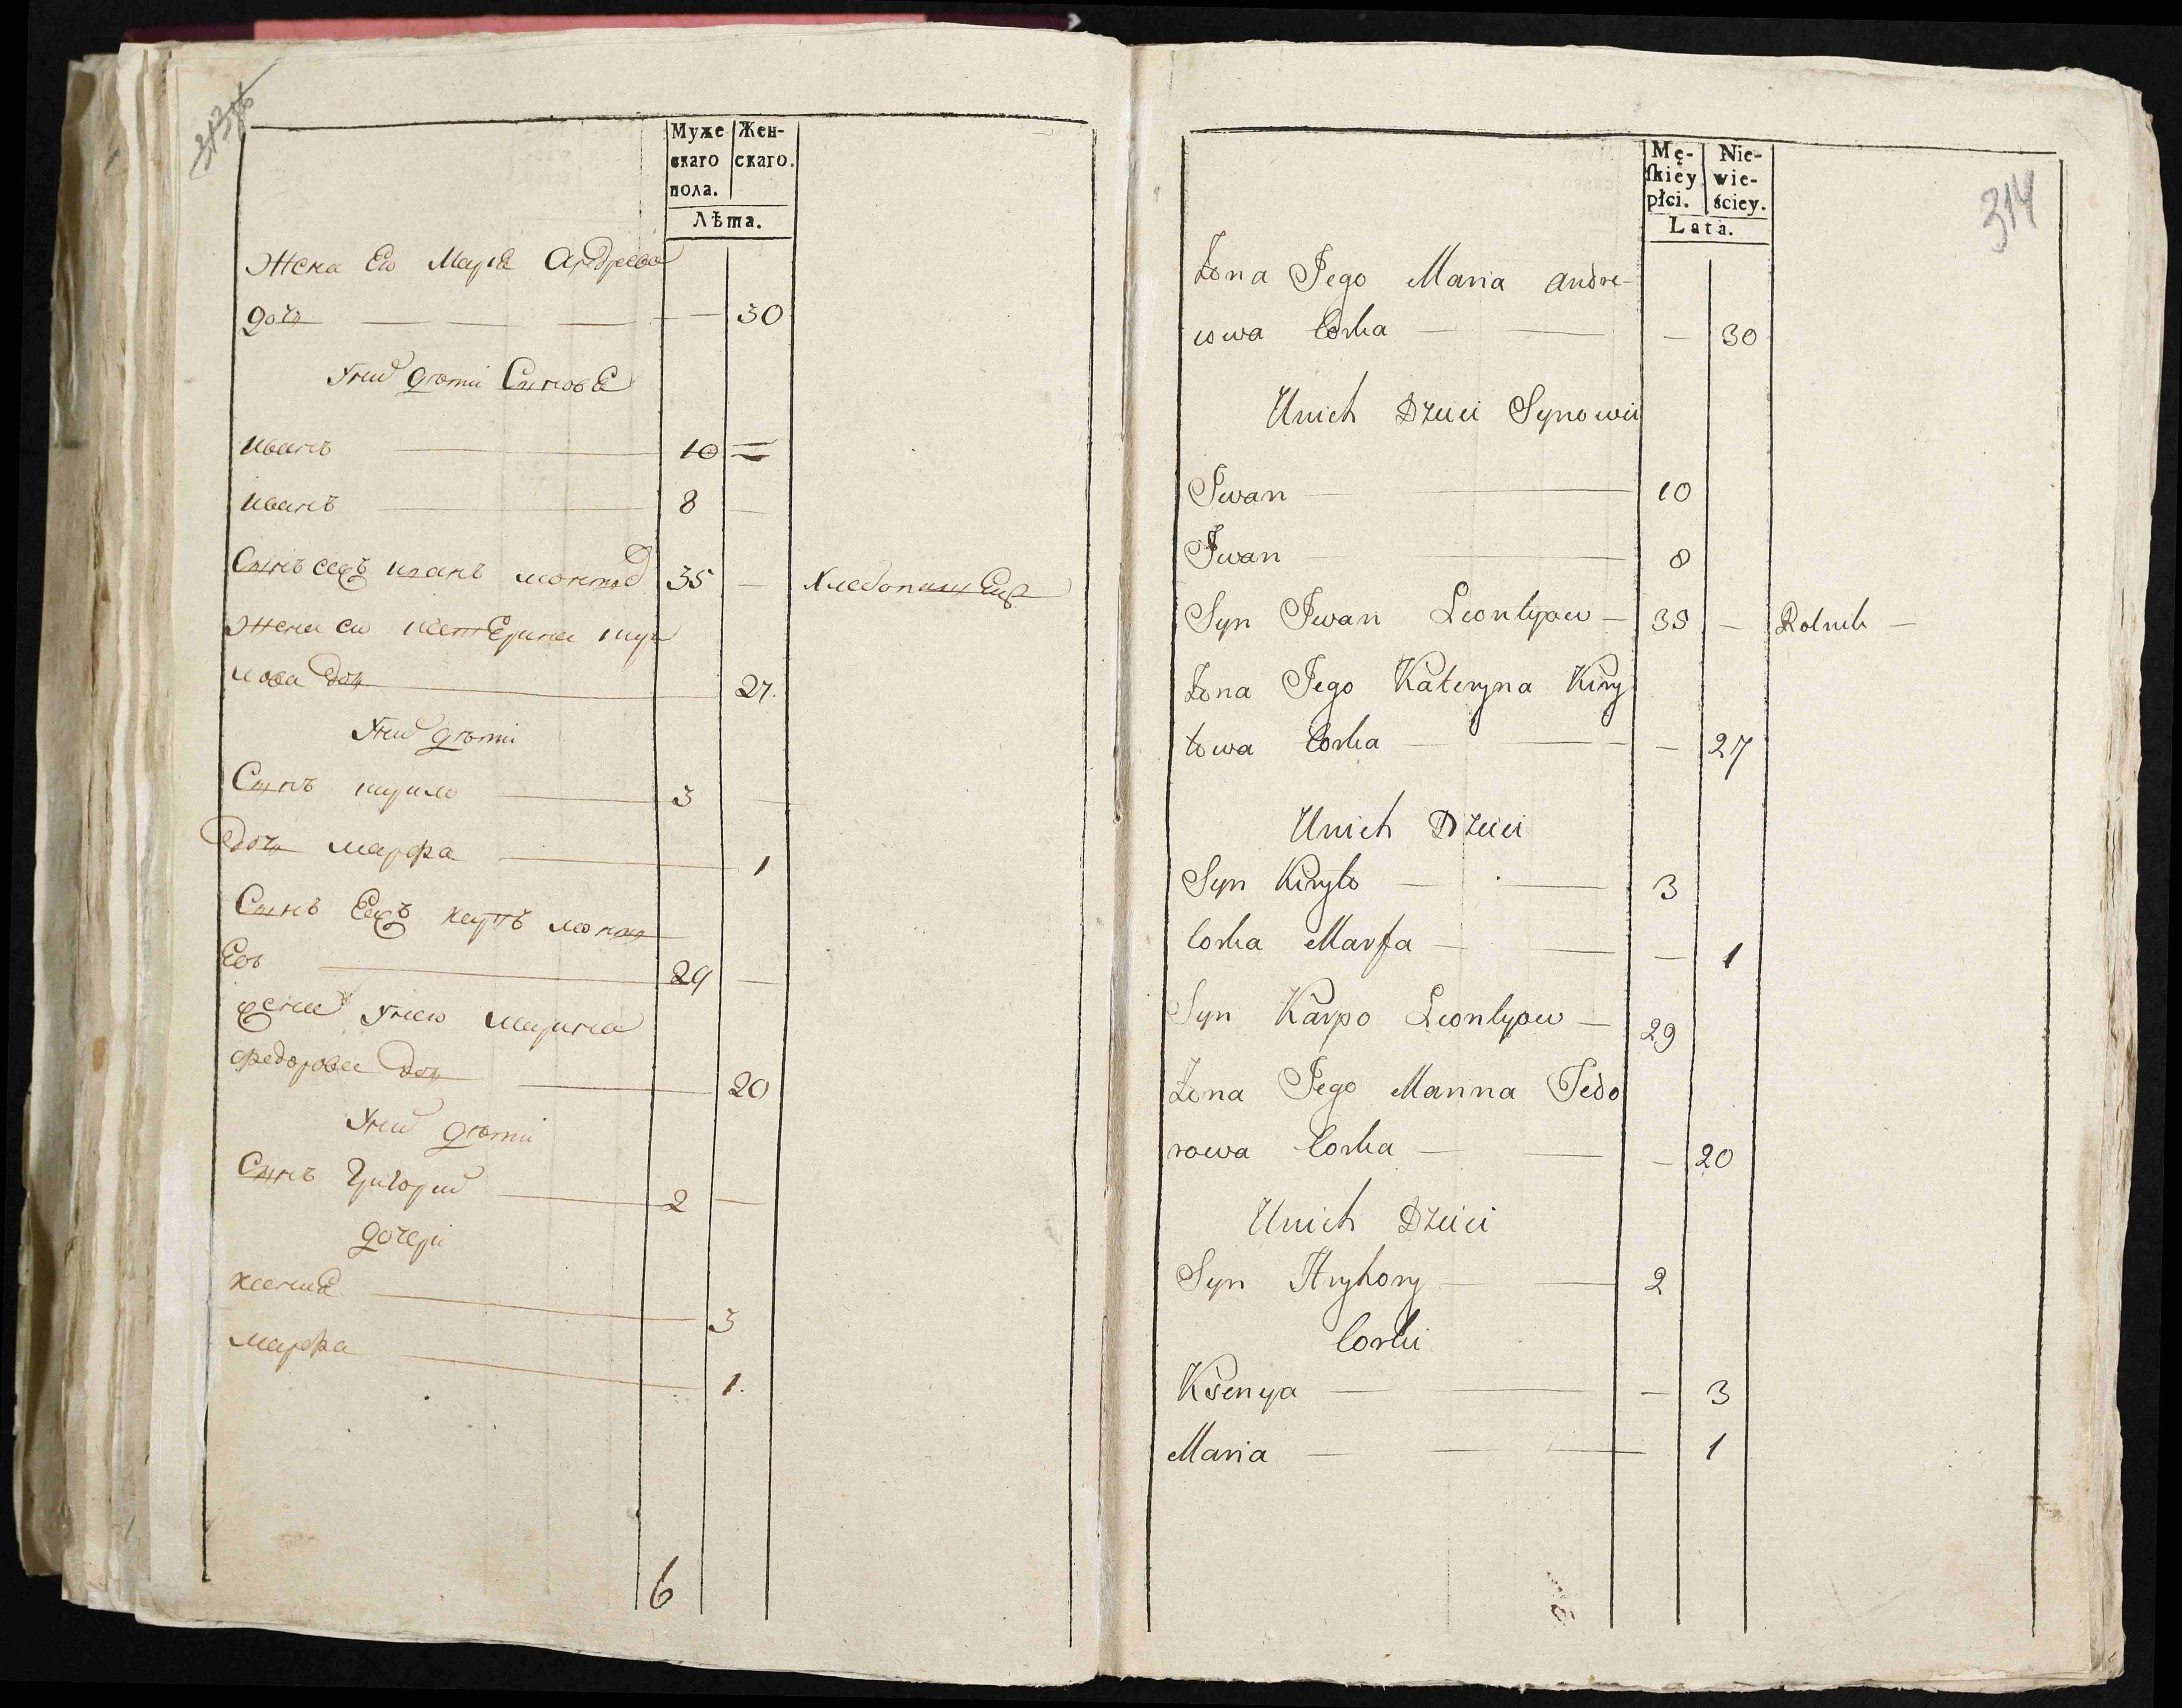 Муже
скаго
пола.
Жен-
скаго.
Лѣта.
Жена Ево Марія Андреева
дочь — — — — 30
У них дѣти Синовя
Иванъ — 10 =
Иванъ — 8 —
Сынъ Иванъ 35 — Хлебопашецъ
Жена ево Катерина Кири
лова дочь — 27.
У них дѣти
Сынъ кирило — 3 —
дочь марфа — 1
Сынъ карпъ леонти
евъ — 29 —
жена марина
федорова дочь — 20
У них дѣти
Сынъ Григорий — 2 —
дочери
ксения — 3
марфа — 1.
6
314
Mę-
ſkiey
płci.
Nie-
wie-
ściey.
Lata.
Żona Jego Maria Andre-
iowa Corka — — — 30
Unich Dzieci Synowii
Iwan — — 10
Iwan — — 8
Syn Iwan Leontyow — 35 — Rolnik —
Żona Jego Kateryna Kiry
łowa Corka — — — 27
Unich Dzieci
Syn Kiryło — — 3
Corka Marfa — — — 1
Syn Karpo Leontyow — 29
Żona Jego Marinna Fedo
rowa Corka — — — 20
Unich Dzieci
Syn Hryhory — — 2
Corki
Ksenya — — — 3
Maria — — 1